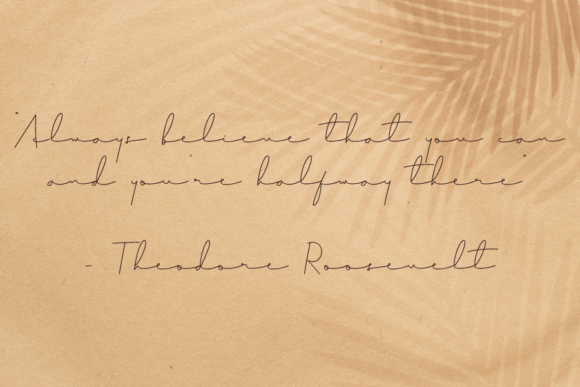 "Always believe that you can
and you're halfway there"
- Theodore Roosevelt